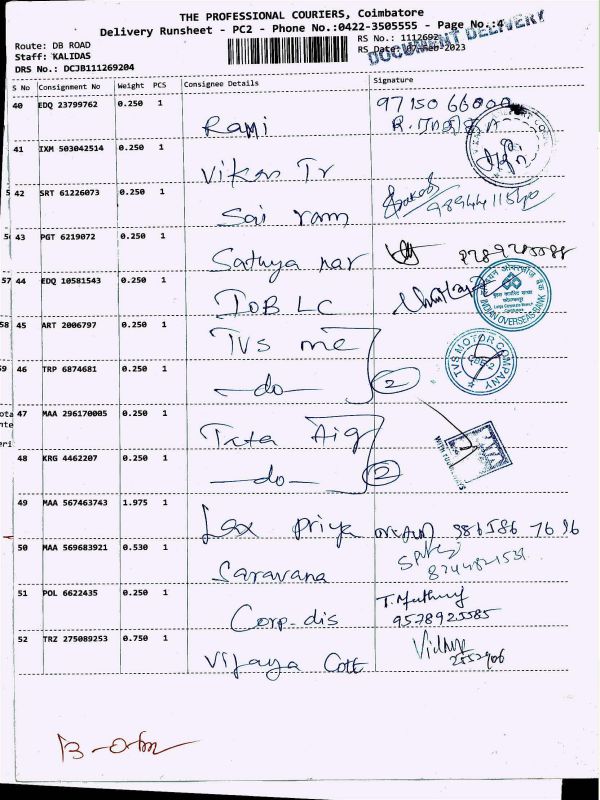 THE PROFESSIONAL COURIERS, Coimbatore
Delivery Runsheet - PC2 - Phone No.:0422-3505555 - Page No.:4
Route: DB ROAD
RS No.: 1112692
Staff: KALIDAS
RS Date: 07-Feb-2023
DOCUMENT DELIVERY
DRS No.: DCJB111269204
S No Consignment No Weight PCS Consignee Details Signature
40 EDQ 23799762 0.250 1 Rami 97150 66000
41 IXM 503042514 0.250 1 Vikas Tr
42 SRT 61226073 0.250 1 Sai ram
43 PGT 6219072 0.250 1 Sathya nar
57 44 EDQ 10581543 0.250 1 IOB LC
INDIAN OVERSEAS BANK
58 45 ART 2006797 0.250 1 TVS me
TVS MOTOR COMPANY
59 46 TRP 6874681 0.250 1 -do- 2
47 MAA 296170005 0.250 1 Tata Aig
48 KRG 4462207 0.250 1 -do- 2
49 MAA 567463743 1.975 1 Lax Priya 986586 7696
50 MAA 569683921 0.530 1 Saravana
51 POL 6622435 0.250 1 Corp-dis T.Muthu 9578925585
52 TRZ 275089253 0.750 1 Vijaya Cott